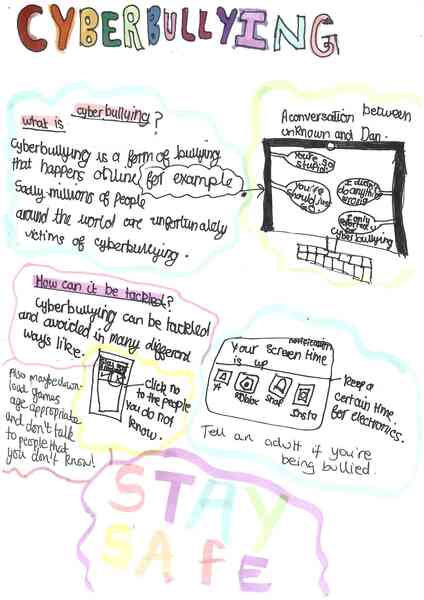 CYBERBULLYING
what is cyberbullying?
Cyberbullying is a form of bullying
that happens online for example
Sadly millions of people
around the world are unfortunately
victims of cyberbullying.
A conversation between
unknown and Dan.
You're so
stupid
You're
I didn't
do anything
wrong
I only
cyberbullying
How can it be tackled?
Cyberbullying can be tackled
and avoided in many different
ways like.
click no
to the people
you do not
know.
Also maybe down-
load games
age appropriate
and don't talk
to people that
you don't know!
notification
Your screen time
is up
Roblox
Snap
Insta
Keep a
certain time
for electronics.
Tell an adult if you're
being bullied.
STAY
SAFE